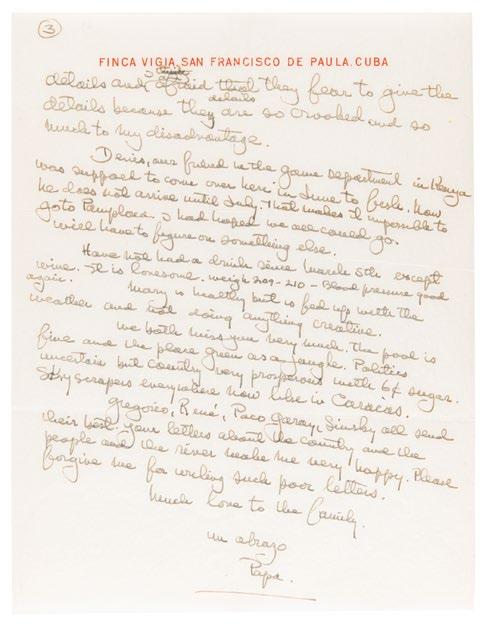 3
FINCA VIGIA, SAN FRANCISCO DE PAULA, CUBA
details and, I am afraid that they fear to give the
details because they details are so crooked and so
much to my disadvantage.
Denis, our friend in the game department in Kenya
was supposed to come over here in June to fish. Now
he does not arrive until July. That makes it impossible to
go to Pamplona. I had hoped we all could go.
Will have to figure on something else.
Have not had a drink since March 5th except
wine. It is lonesome. Weigh 209-210 - Blood pressure good
again. Mary is healthy but is fed up with the
weather and not doing anything creative.
We both miss you very much. The pool is
fine and the place green as a jungle. Politics
uncertain but country very prosperous with 6¢ sugar.
Skyscrapers everywhere now like in Caracas.
Gregorio, René, Paco Garay, Sinsky all send
their best. Your letters about the country and the
people and the river make me very happy. Please
forgive me for writing such poor letters.
Much love to the family.
un abrazo
Papa.